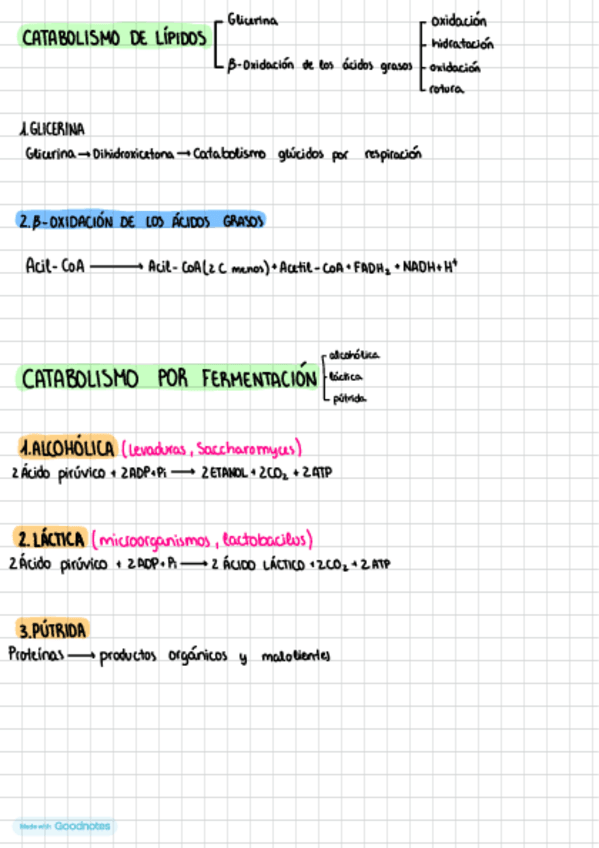 CATABOLISMO DE LÍPIDOS
Glicerina
β-Oxidación de los ácidos grasos
oxidación
hidratación
oxidación
rotura
1.GLICERINA
Glicerina → Dihidroxicetona → Catabolismo glúcidos por respiración
2.β-OXIDACIÓN DE LOS ÁCIDOS GRASOS
Acil-CoA → Acil-CoA(2 C menos) + Acetil-CoA + FADH₂ + NADH+H⁺
CATABOLISMO POR FERMENTACIÓN
alcohólica
láctica
pútrida
1.ALCOHÓLICA (Levaduras, Saccharomyces)
2 Ácido pirúvico + 2ADP+Pi → 2 ETANOL + 2CO₂ + 2ATP
2. LÁCTICA (microorganismos, lactobacilus)
2 Ácido pirúvico + 2 ADP+Pi → 2 ÁCIDO LÁCTICO + 2CO₂ + 2 ATP
3.PÚTRIDA
Proteínas → productos orgánicos y malolientes
Made with Goodnotes